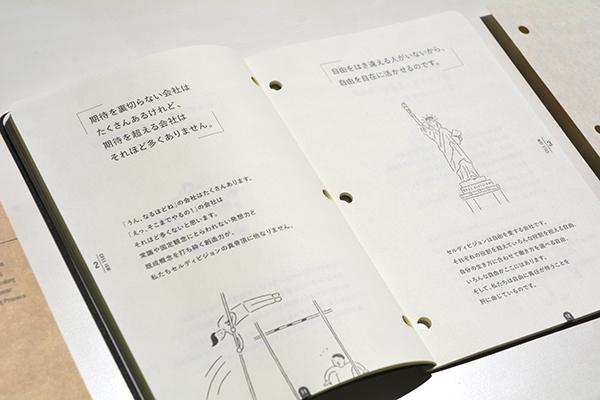 期待を裏切らない会社は
たくさんあるけれど、
期待を超える会社は
それほど多くありません。
「うん、なるほどね」の会社はたくさんあります。
「えっ、そこまでやるの!」の会社は
それほど多くないと思います。
常識や固定観念にとらわれない発想力と
既成概念を打ち砕く創造力が、
私たちセルディビジョンの真骨頂に他なりません。
自由をはき違える人がいないから、
自由を自在に活かせるのです。
セルディビジョンは自由を愛する会社です。
それぞれの役割を超えていろんな役割を担える自由、
自分の生き方に合わせて働き方を選べる自由、
いろんな自由がここにはあります。
そして、私たちは自由に責任が伴うことを
肝に命じているのです。